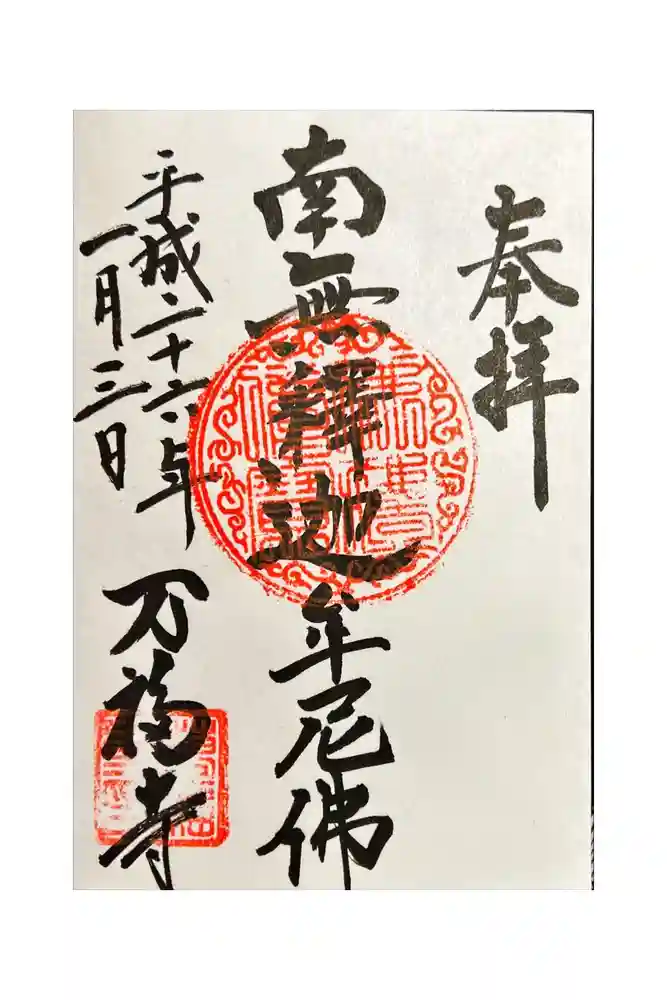 奉拝
南無釋迦牟尼佛
平成二十六年
一月三日
万福寺